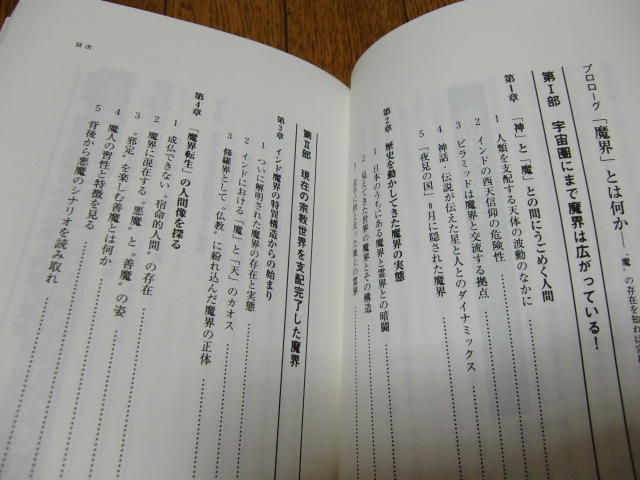 プロローグ 「魔界」とは何か──“魔”の存在を知れば
第Ⅰ部 宇宙圏にまで魔界は広がっている！
第1章 「神」と「魔」との間にうごめく人間
1 人類を支配する天体の波動のなかに
2 インドの西天信仰の危険性
3 ピラミッドは魔界と交流する拠点
4 神話・伝説が伝えた星と人とのダイナミックス
5 「夜見の国」=月に隠された魔界
第2章 歴史を動かしてきた魔界の実態
1 日本のうちにある魔界と霊界との暗闘
2 見えてきた世界の魔界とその構造
目次
第Ⅱ部 現在の宗教世界を支配完了した魔界
第3章 インド魔界の特異構造からの始まり
1 ついに解明された魔界の存在と実態
2 インドにおける「魔」と「天」のカオス
3 修羅界として“仏教”に紛れ込んだ魔界の正体
第4章 「魔界転生」の人間像を探る
1 成仏できない“宿命的人間”の存在
2 魔界に混在する“悪魔”と“善魔”の姿
3 “邪淫”を楽しむ善魔とは何か
4 魔人の習性と特徴を見る
5 背後から悪魔のシナリオを読み取れ